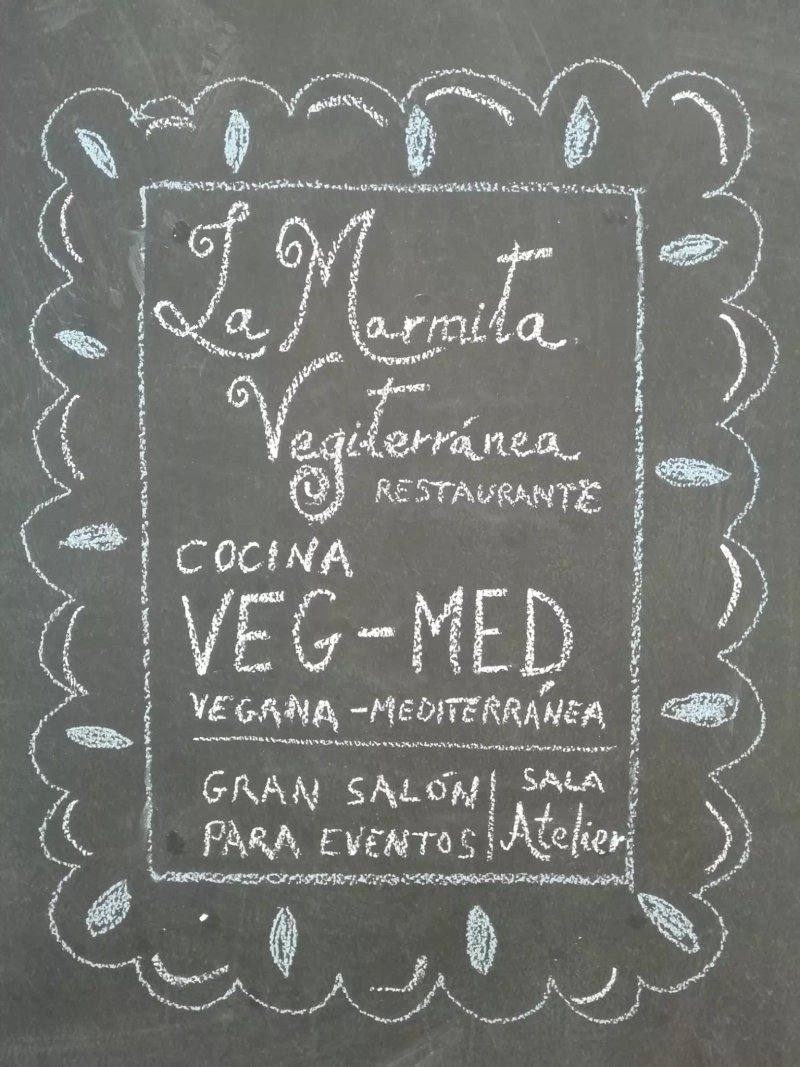 La Marmita
Vegiterránea
RESTAURANTE
COCINA
VEG-MED
VEGANA-MEDITERRÁNEA
GRAN SALÓN
PARA EVENTOS
SALA
Atelier